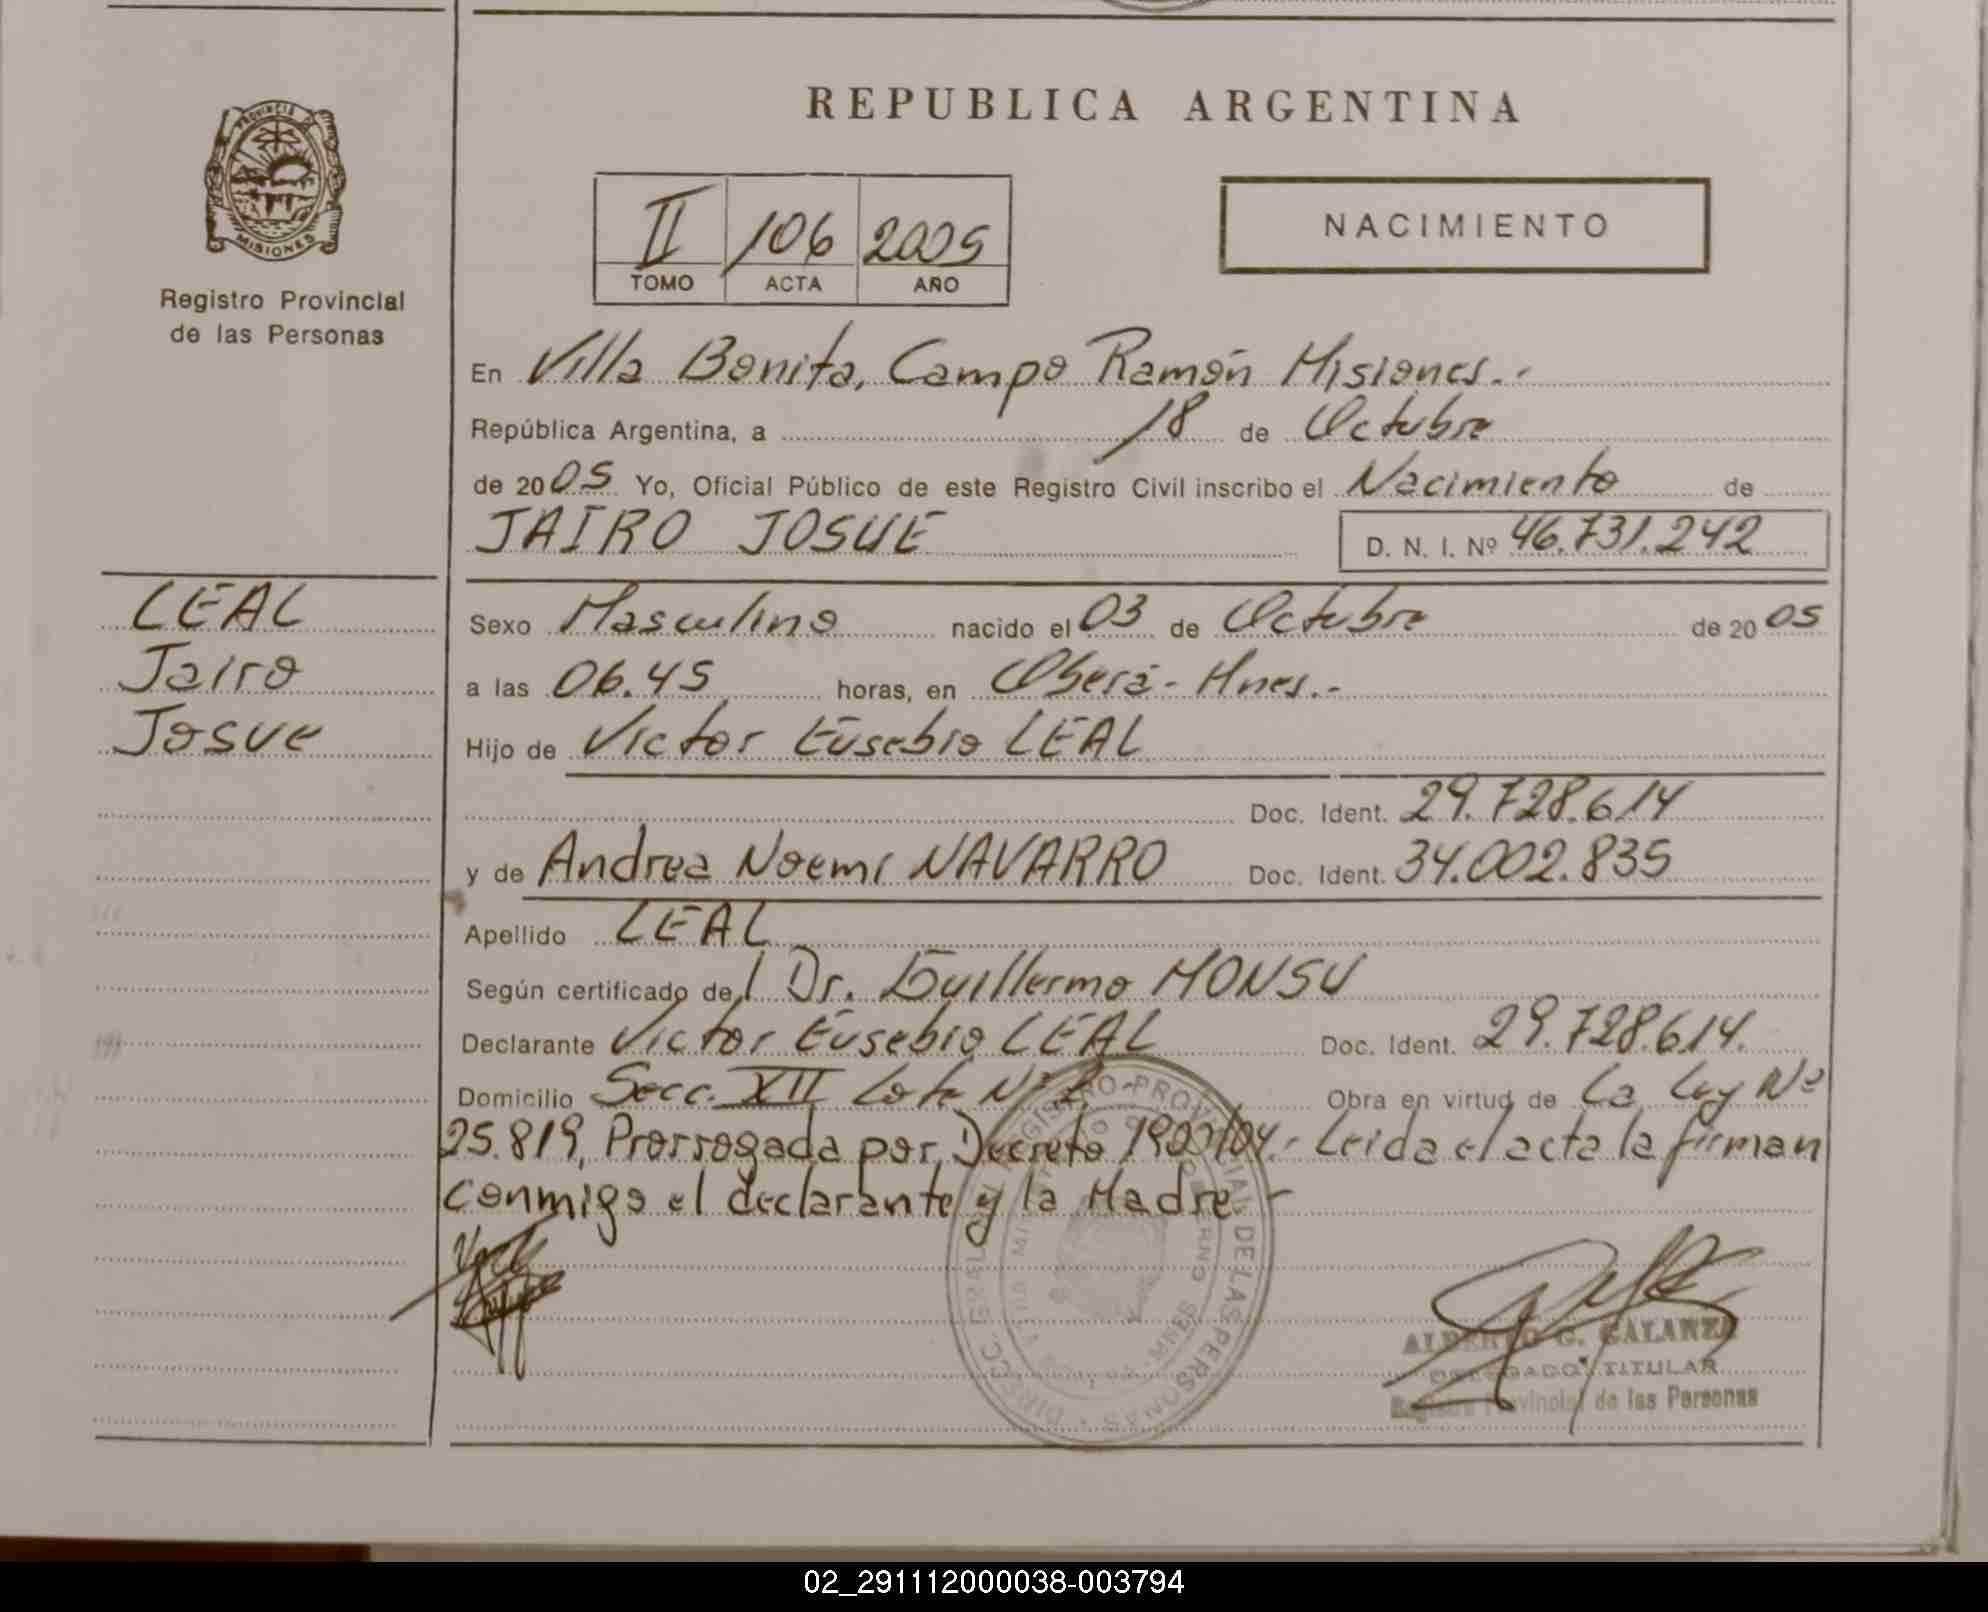 REPUBLICA ARGENTINA
PROVINCIA DE
MISIONES
Registro Provincial
de las Personas
II 106 2005
TOMO ACTA AÑO
NACIMIENTO
En Villa Bonita, Campo Ramón Misiones.-
República Argentina, a 18 de Octubre
de 2005 Yo, Oficial Público de este Registro Civil inscribo el Nacimiento de
JAIRO JOSUE D. N. I. Nº 46.731.242
LEAL
Jairo
Josue
Sexo Masculino nacido el 03 de Octubre de 2005
a las 06.45 horas, en Oberá - Mnes.-
Hijo de Victor Eusebio LEAL
Doc. Ident. 29.728.614
y de Andrea Noemi NAVARRO Doc. Ident. 34.002.835
Apellido LEAL
Según certificado del Dr. Guillermo MONSU
Declarante Victor Eusebio LEAL Doc. Ident. 29.728.614.
Domicilio Secc. XII Lote Nº 2 Obra en virtud de La Ley Nº
25.819, Prorrogada por Decreto 1901/04.- Leida el acta la firman
conmigo el declarante y la Madre -
DIRECC. GRAL. REGISTRO PROVINCIAL DE LAS PERSONAS
ALBERTO G. GALARZA
DELEGADO TITULAR
Registro Provincial de las Personas
02_291112000038-003794